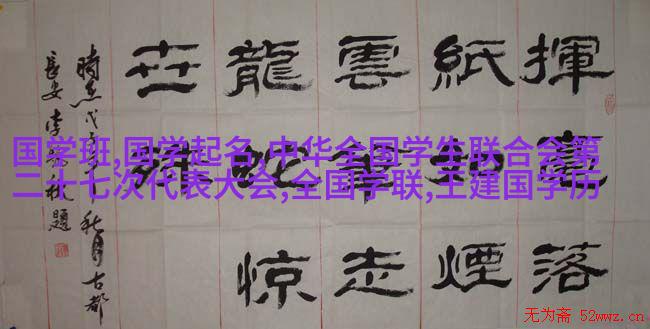 国学班,国学起名,中华全国学生联合会第
二十七次代表大会,全国学联,王建国学历
揮毫落
紙煙
雲筆走
龍蛇惊
世
秋月古都
長安李題
无为斋 52wwz.cn